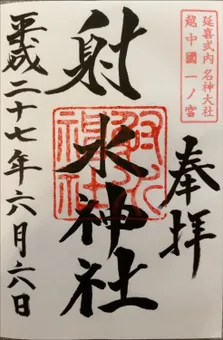 延喜式内 名神大社
越中國一ノ宮
奉拝
射水神社
平成二十七年六月六日